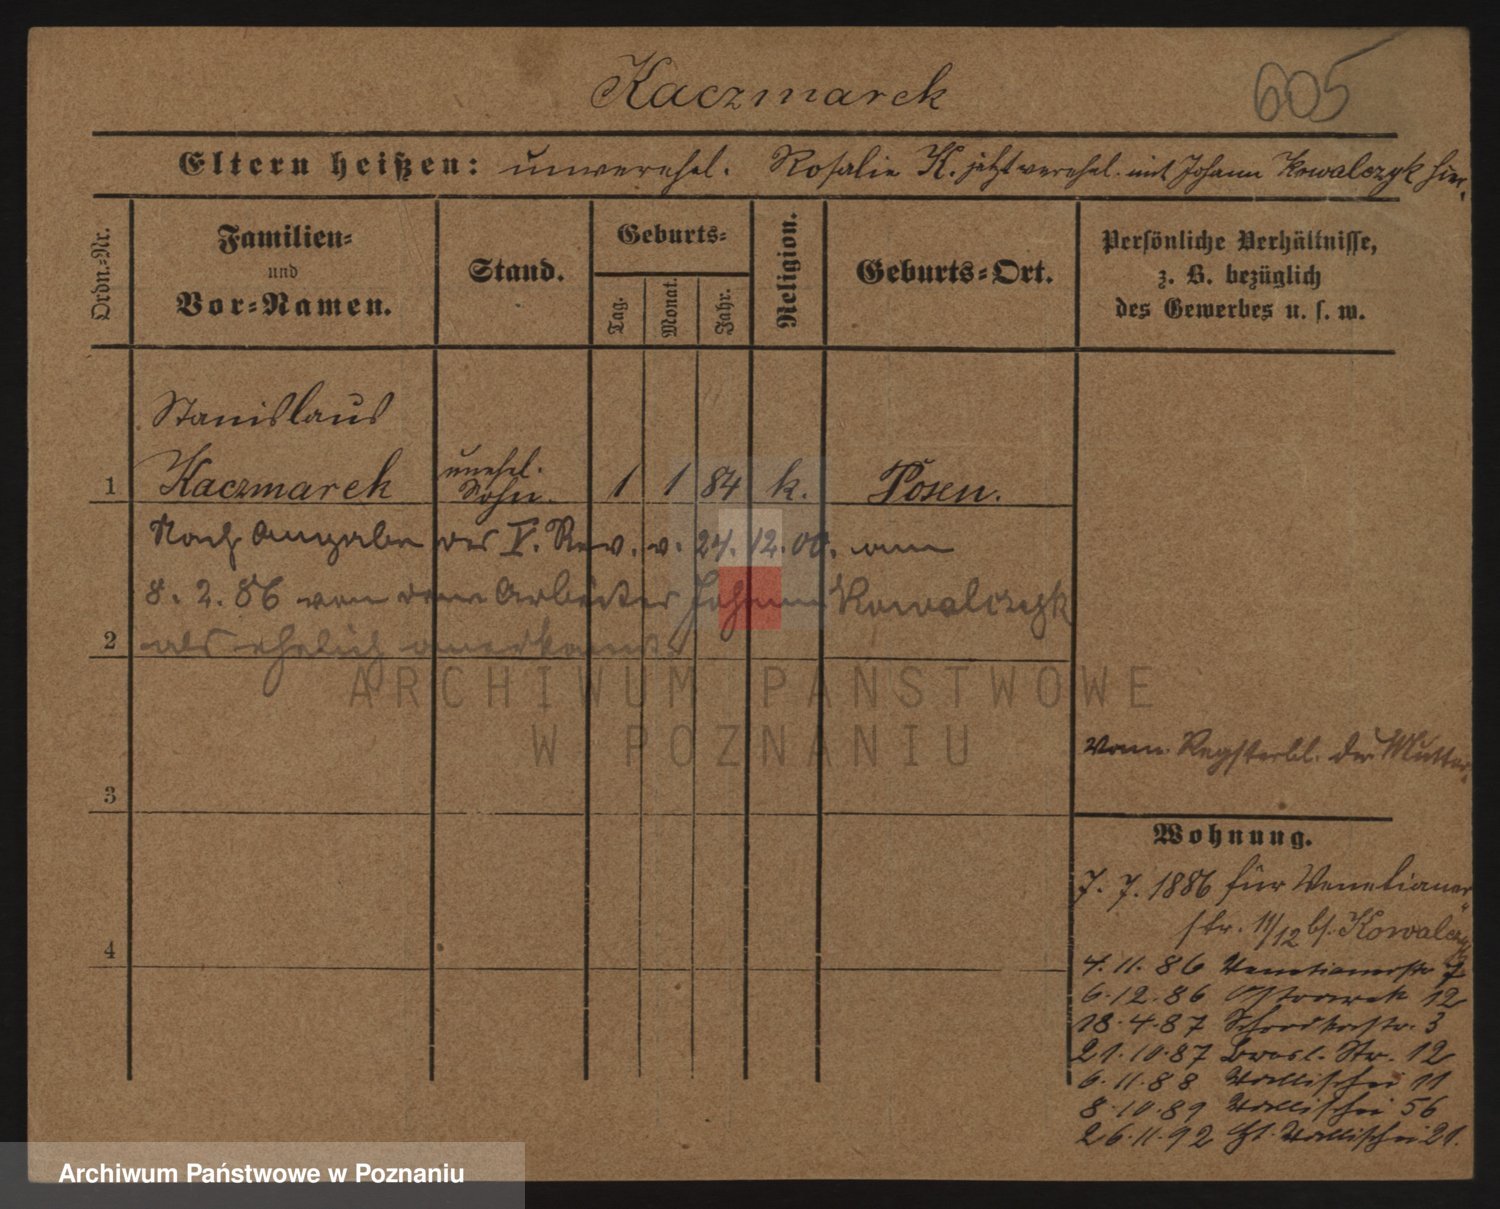 Kaczmarek
605
Eltern heißen: unverehel. Rosalie K. jetzt verehel. mit Johann Kowalczyk hier.
Ordn.-Nr.
Familien-
und
Vor-Namen.
Stand.
Geburts-
Tag.
Monat.
Jahr.
Religion.
Geburts-Ort.
Persönliche Verhältnisse,
z. B. bezüglich
des Gewerbes u. s. w.
Stanislaus
1 Kaczmarek unehel. Sohn. 1 1 84 k. Posen.
Nach Angabe des V. Rev. v. 24. 12. 00. am
8. 2. 86 von dem Arbeiter Johann Kowalczyk
2 als ehelich anerkannt.
ARCHIWUM PAŃSTWOWE
W POZNANIU
vom Registerbl. der Mutter.
3
Wohnung.
7. 7. 1886 für Venetianer
str. 11/12 bs. Kowalczyk
4
4. 11. 86 Venetianerstr 7
6. 12. 86 Ostrowek 12
18. 4. 87 Schrodkastr. 3
21. 10. 87 Bresl. Str. 12
6. 11. 88 Wallischei 11
8. 10. 89 Wallischei 56
26. 11. 92 Wallischei 21.
Archiwum Państwowe w Poznaniu